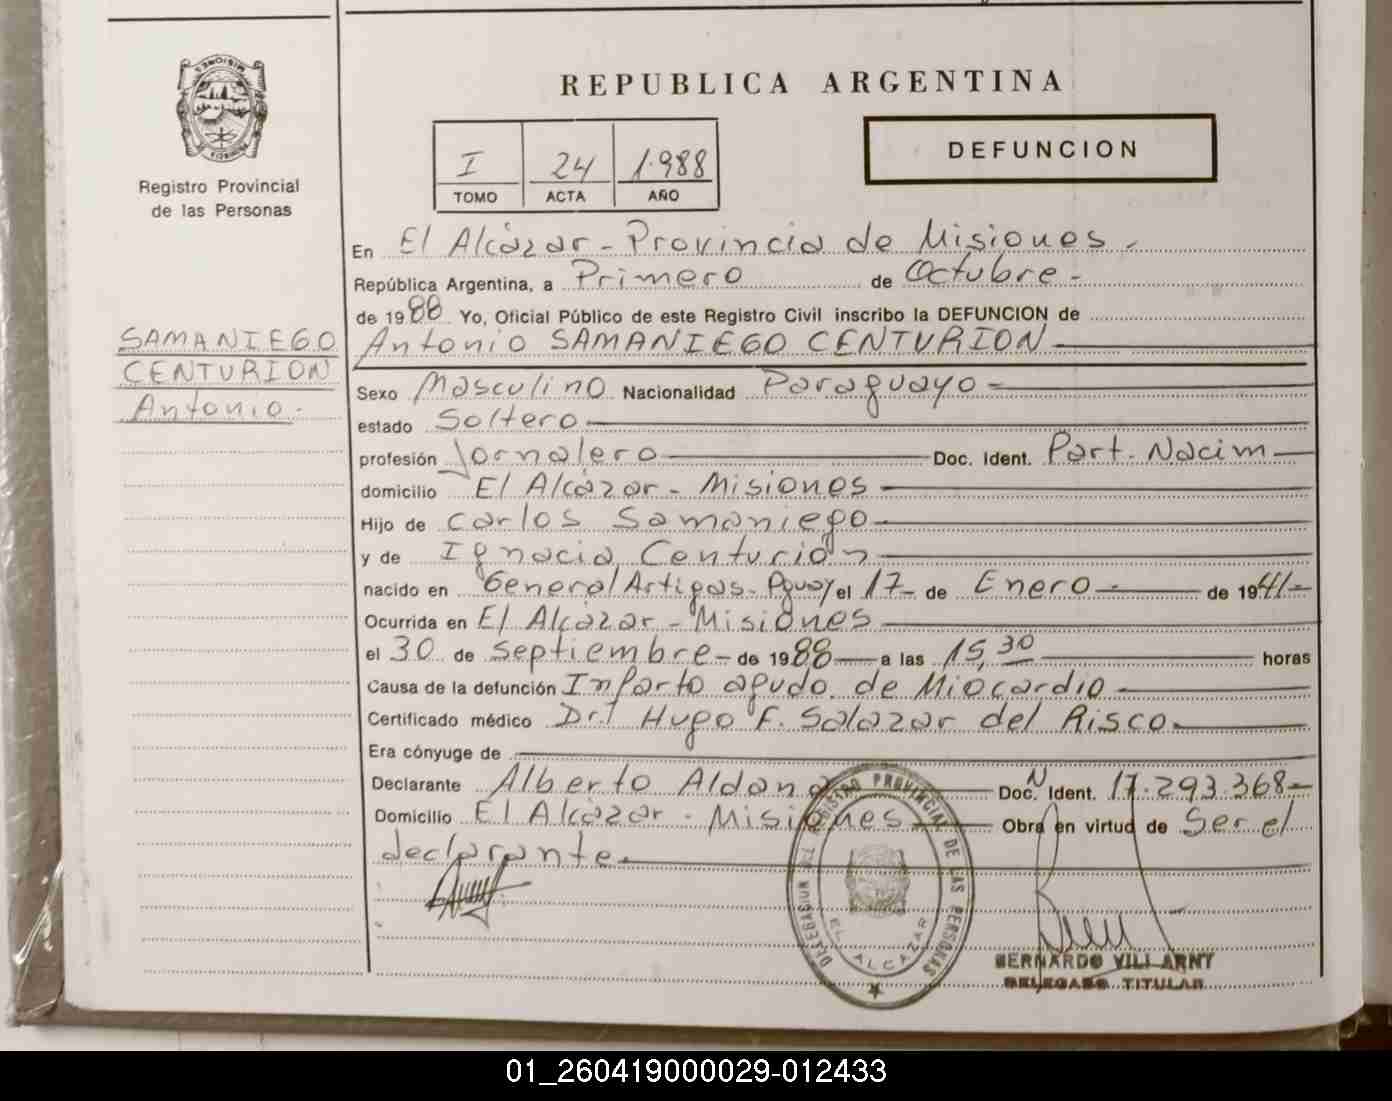 REPUBLICA ARGENTINA
MISIONES
PROVINCIA
Registro Provincial
de las Personas
I 24 1.988
TOMO ACTA AÑO
DEFUNCION
SAMANIEGO
CENTURION
Antonio.
En El Alcázar - Provincia de Misiones.
República Argentina, a Primero de Octubre -
de 1988 Yo, Oficial Público de este Registro Civil inscribo la DEFUNCION de
Antonio SAMANIEGO CENTURION
Sexo Masculino Nacionalidad Paraguayo -
estado Soltero
profesión Jornalero Doc. Ident. Part. Nacim
domicilio El Alcázar - Misiones
Hijo de Carlos Samaniego
y de Ignacia Centurión
nacido en General Artigas - Pguay el 17 - de Enero - de 1941 -
Ocurrida en El Alcázar - Misiones
el 30 de Septiembre - de 1988 a las 15,30 horas
Causa de la defunción Infarto agudo de Miocardio
Certificado médico Dr. Hugo F. Salazar del Risco
Era cónyuge de
Declarante Alberto Aldana Doc. N Ident. 17.293.368 -
Domicilio El Alcázar - Misiones - Obra en virtud de Ser el
declarante.
DELEGACION DEL REGISTRO PROVINCIAL DE LAS PERSONAS
EL ALCAZAR
BERNARDO VILLARNY
DELEGADO TITULAR
01_260419000029-012433